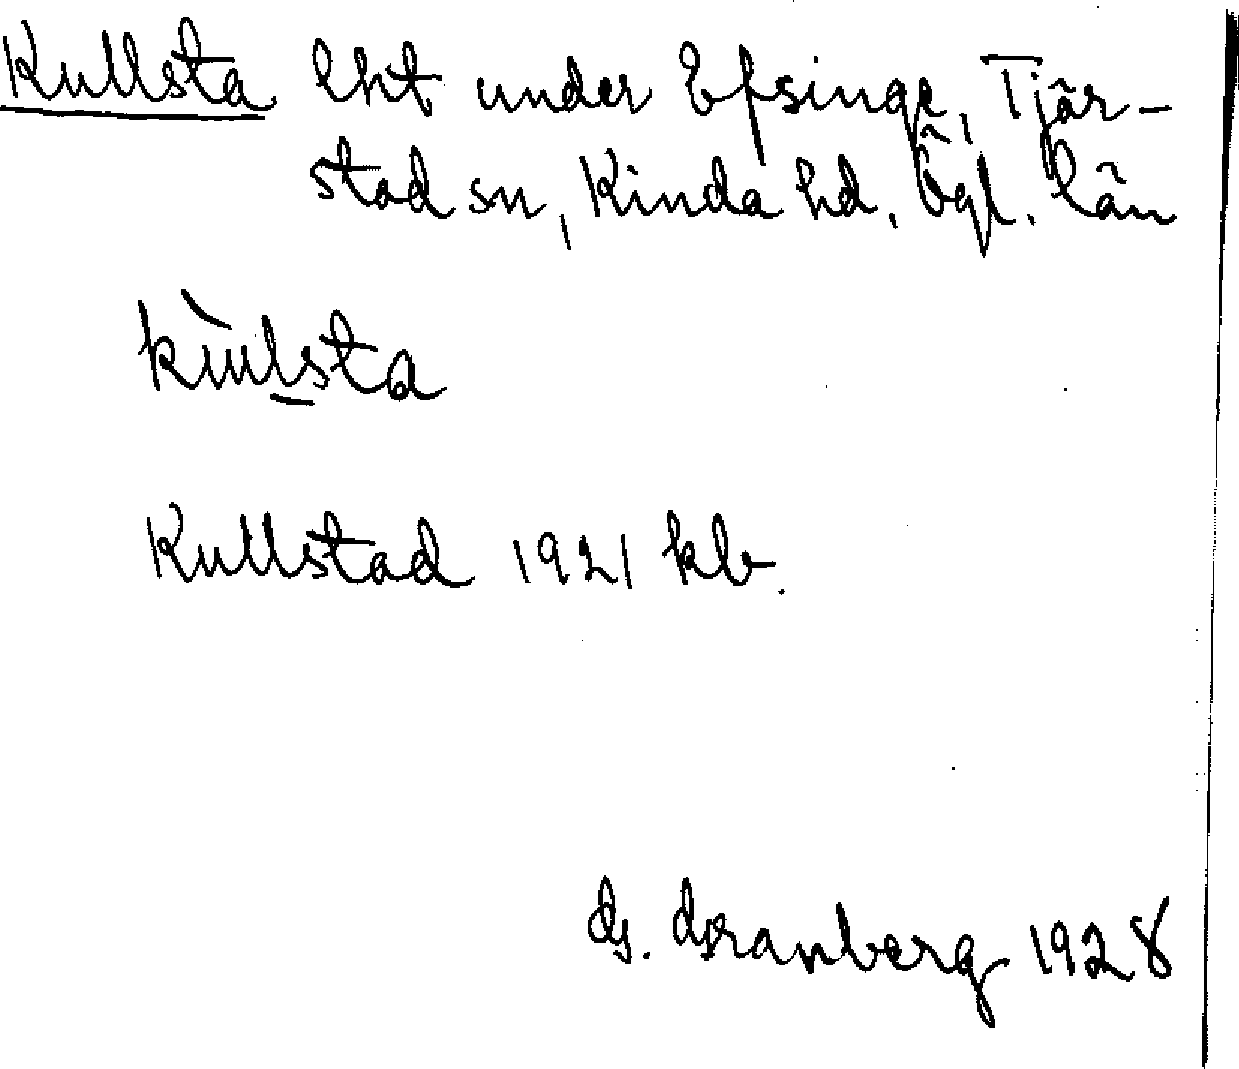 Kullsta lht under Efsinge, Tjär-
stad sn, Kinda hd, Ögl. län
kùlsta
Kullstad 1921 klb.
G. Granberg 1928